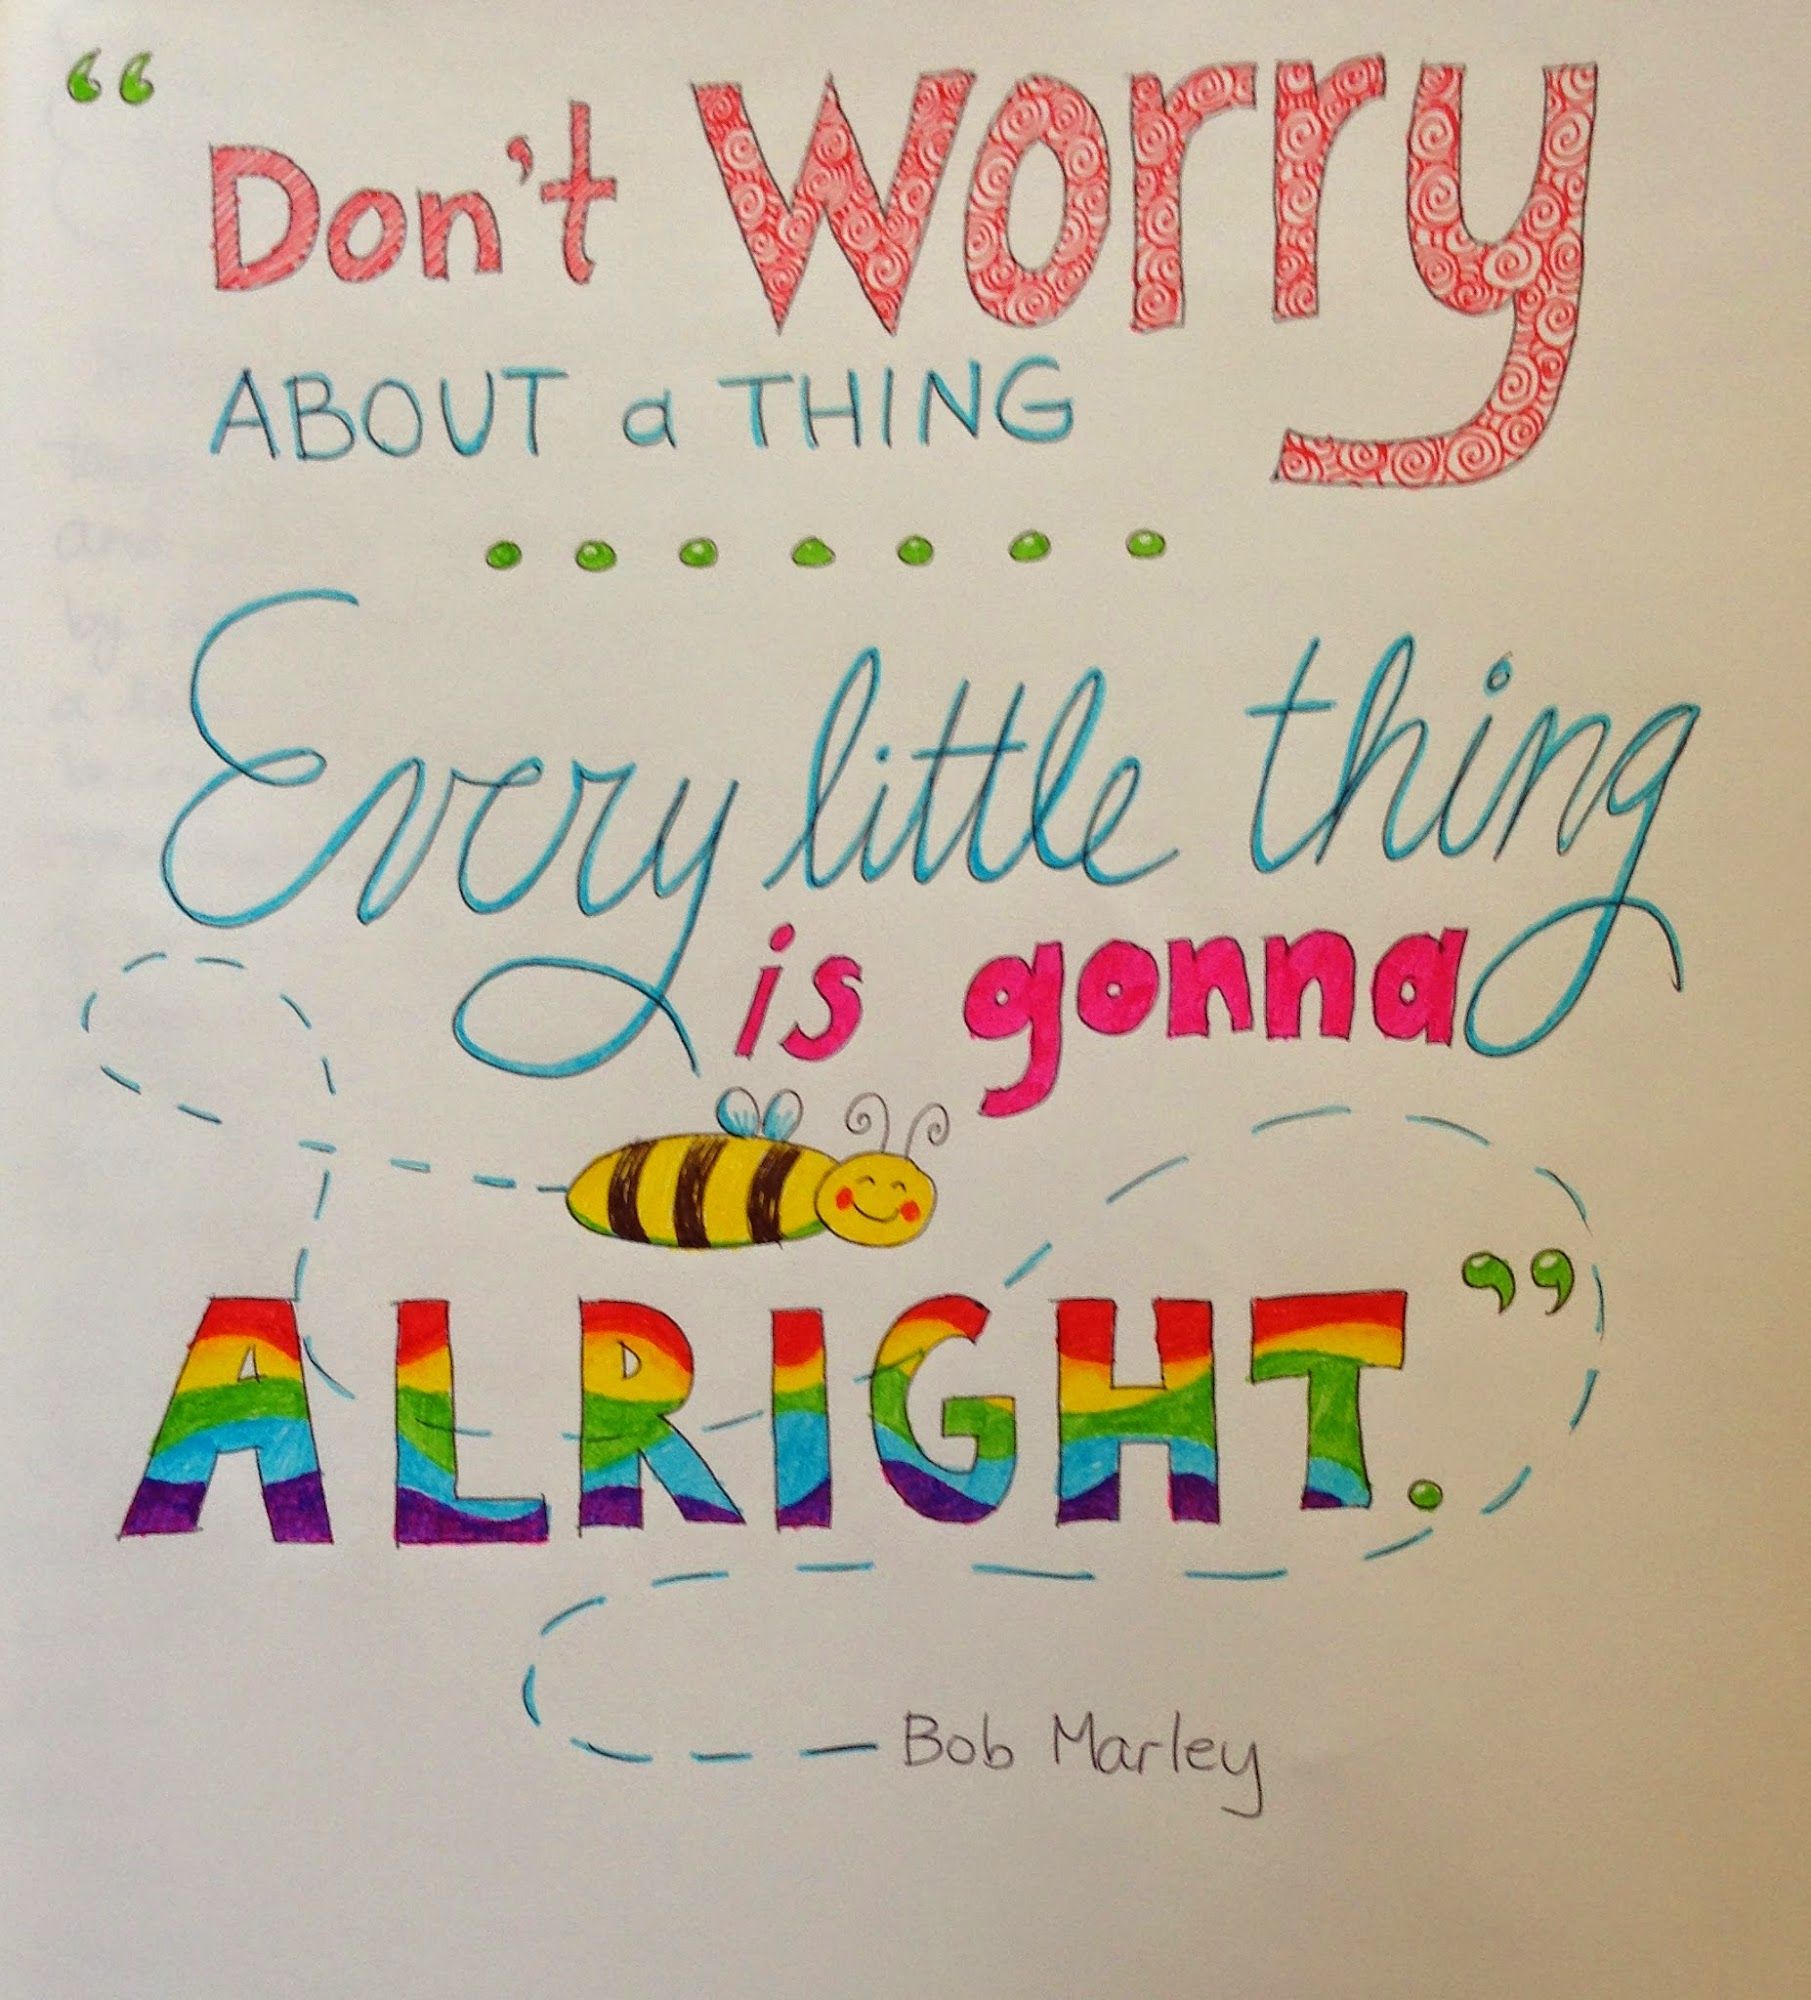 “Don't worry
ABOUT a THING
Every little thing
is gonna
ALRIGHT.”
— Bob Marley